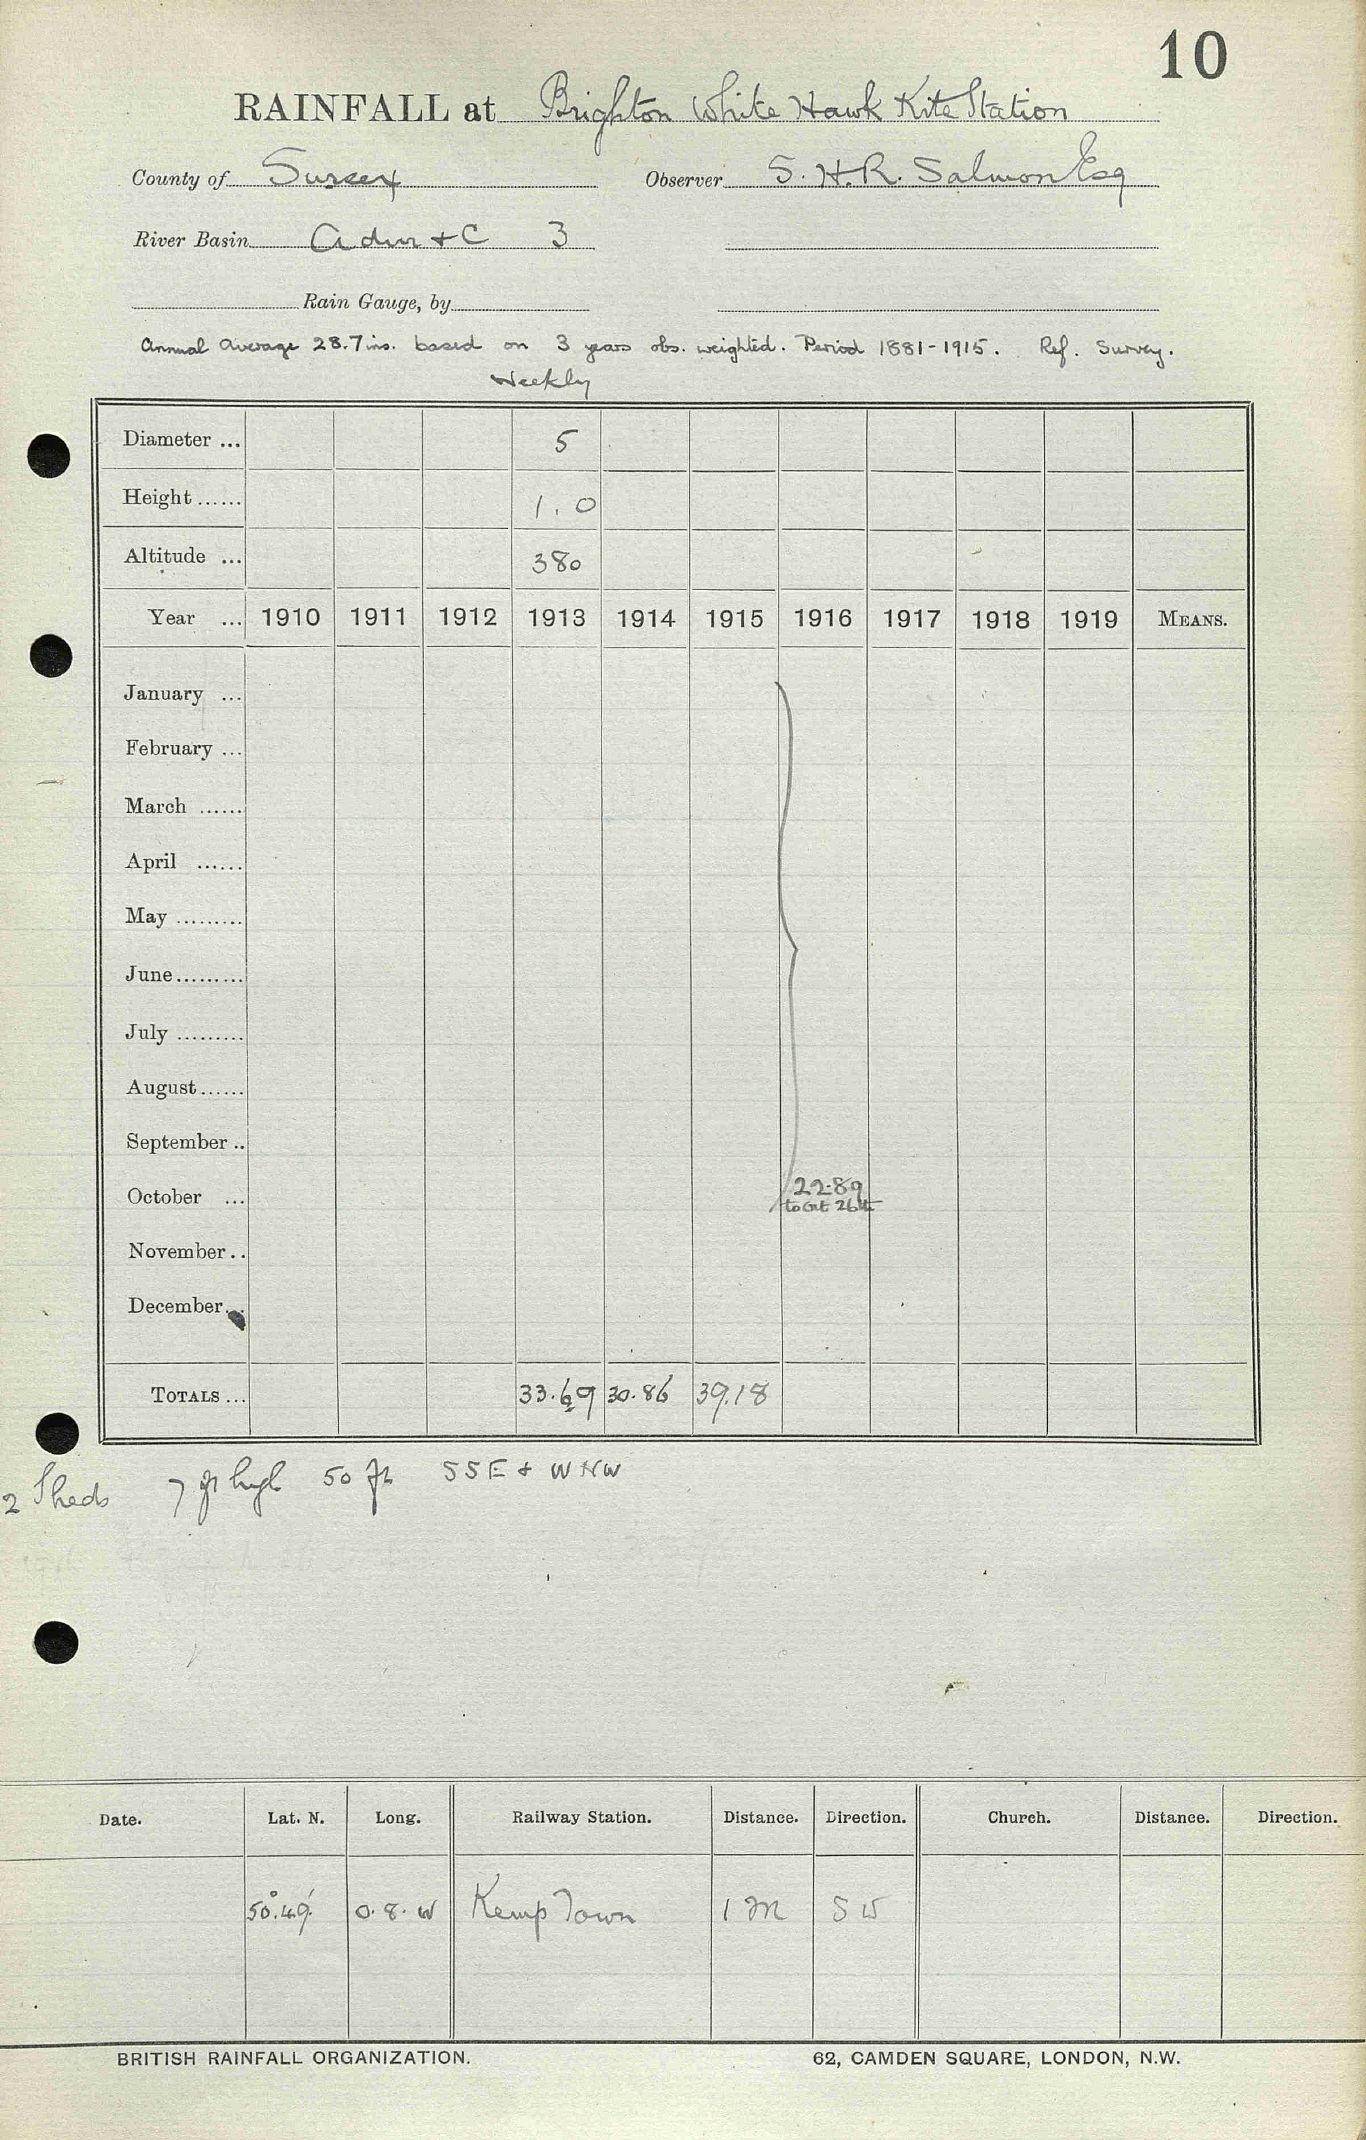 10
RAINFALL at Brighton White Hawk Kite Station
County of Sussex Observer S. H. R. Salmon Esq
River Basin Adur & C 3
Rain Gauge, by
Annual Average 28.7 ins. based on 3 years obs. weighted. Period 1881-1915. Ref. Survey.
Weekly
Diameter ... 5
Height ...... 1.0
Altitude ... 380
Year ... 1910 1911 1912 1913 1914 1915 1916 1917 1918 1919 MEANS.
January ...
February ...
March ......
April ......
May .........
June.........
July .........
August......
September ..
October ... 22.89
to Oct 26th
November ..
December...
TOTALS ... 33.69 30.86 39.18
2 Sheds 7 ft high 50 ft SSE & WNW
Date. Lat. N. Long. Railway Station. Distance. Direction. Church. Distance. Direction.
50°.49' 0.8.W Kemp Town 1 M SW
BRITISH RAINFALL ORGANIZATION. 62, CAMDEN SQUARE, LONDON, N.W.